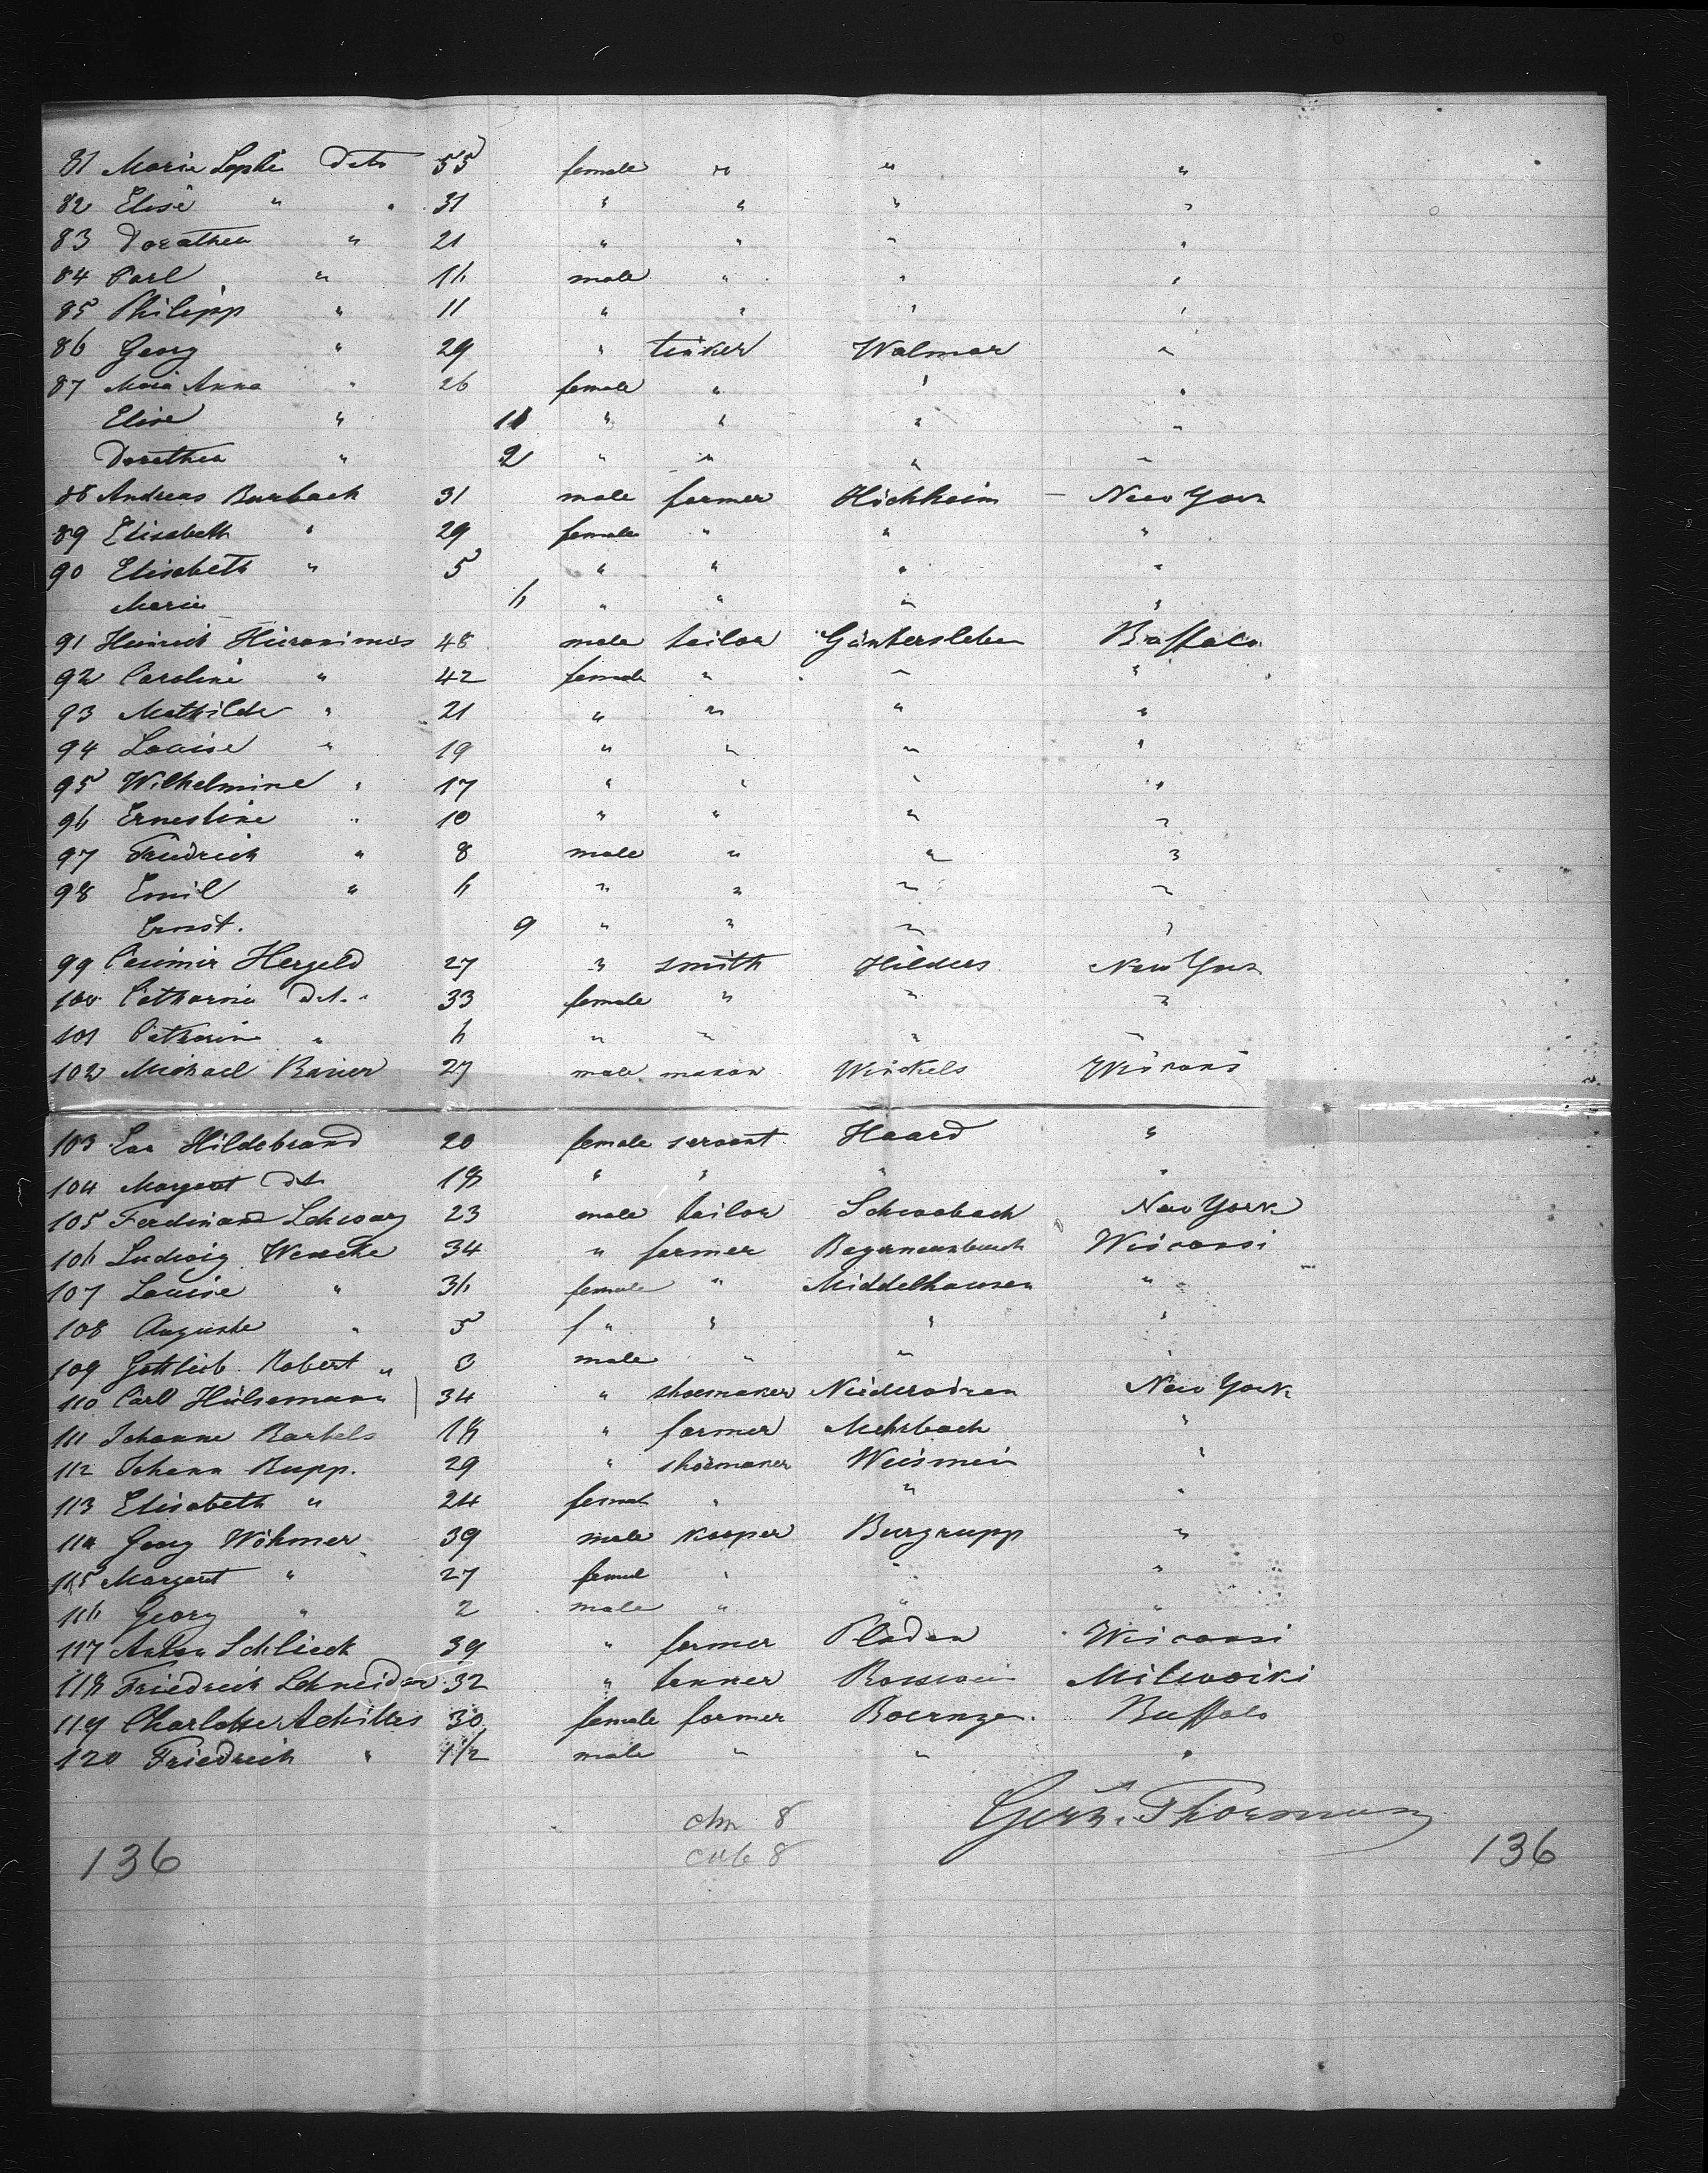 81 Marie Sophi Deto 55 female " " "
82 Elise " 31 " " " "
83 Dorathea " 21 " " " "
84 Carl " 16 male " " "
85 Philipp " 11 " " " "
86 Georg " 29 " tinker Walmar "
87 Maria Anna " 26 female " " "
Elise " 11 " " " "
Dorethea " 2 " " " "
88 Andreas Burbach 31 male farmer Hichheim — New York
89 Elisabeth " 29 female " " "
90 Elisabeth " 5 " " " "
Marie 6 " " " "
91 Heinrich Hieronimus 48 male tailor Güntersleben Buffalo
92 Caroline " 42 female " " "
93 Mathilde " 21 " " " "
94 Louise " 19 " " " "
95 Wilhelmine " 17 " " " "
96 Ernestine " 10 " " " "
97 Friedrich " 8 male " " "
98 Emil " 6 " " " "
Ernst. 9 " " " "
99 Casimir Hergeld 27 " smith Hilders New York
100 Catharine Det. " 33 female " " "
101 Catharin " 6 " " " "
102 Michael Bauer 27 male mason Wickels Wisconsi
103 Eva Hildebrand 20 female servant Haard "
104 Margaret Det 18 " " " "
105 Ferdinand Schwarz 23 male tailor Schwabach New York
106 Ludwig Wencke 34 " farmer Wisconsi
107 Louise " 36 female " Middelhausen "
108 Auguste " 5 f " " " "
109 Gottlieb Robert " 3 male " " "
110 Carl Hülsemann 34 " shoemaker New York
111 Johanne Bartels 18 " farmer Mehrbach "
112 Johann Rupp. 29 " shoemaker Weismein "
113 Elisabeth " 24 femal " " "
114 Georg Wöhmer 39 male kooper Burgrupp "
115 Margaret " 27 femal " " "
116 Georg " 2 male " " "
117 Anton Schlieck 39 " farmer Pladen Wisconsi
118 Friedrich Schneider 32 " tanner Milwoiki
119 Charlotte Achilles 30 female farmer Buffalo
120 Friedrich " 1 1/2 male " " "
Gerh. Thormann
8
8
136 136